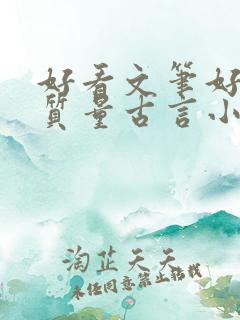 好看文筆好
質量古言小
淘芷天天
未经同意禁止转载